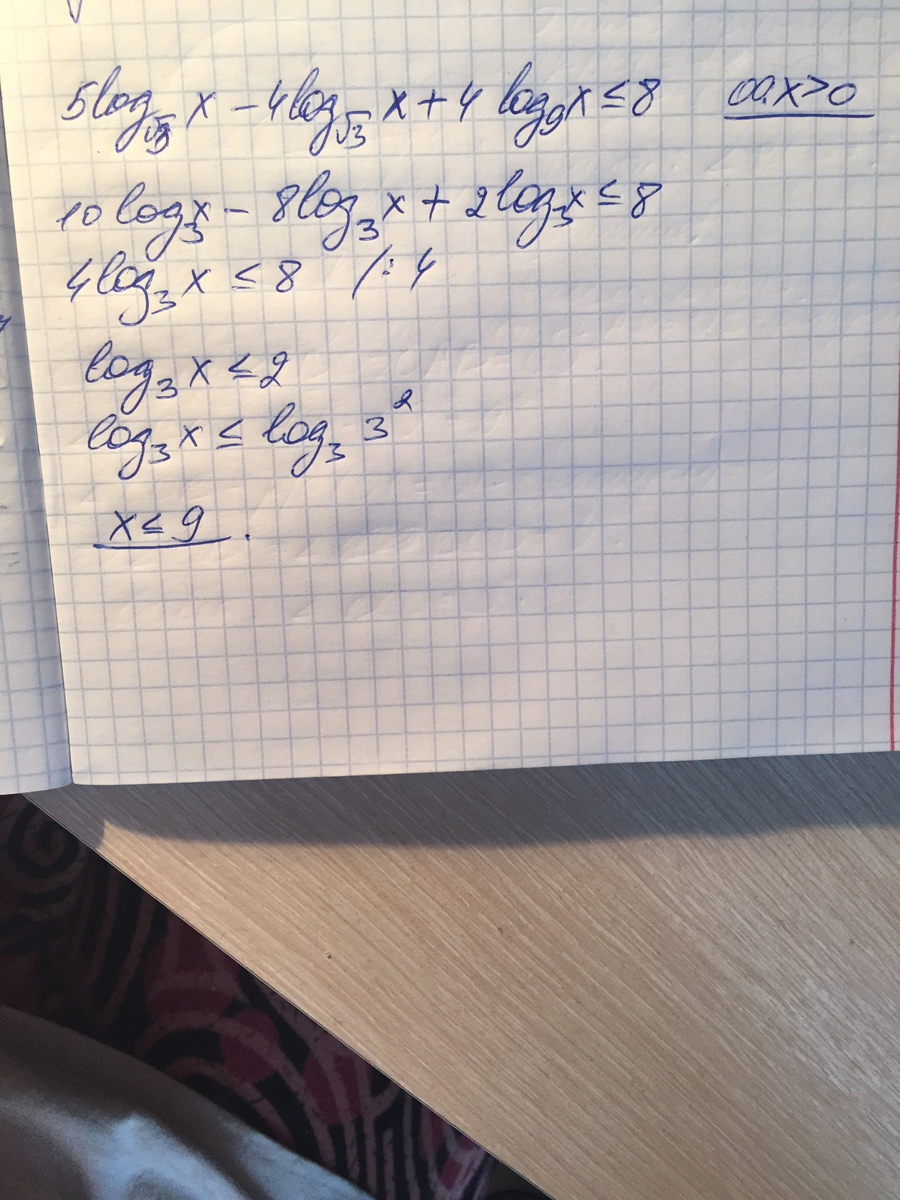 5log_√3 x - 4log_√3 x + 4 log_9 x ≤ 8 x>0
10 log_3 x - 8log_3 x + 2log_3 x ≤ 8
4log_3 x ≤ 8 /: 4
log_3 x ≤ 2
log_3 x ≤ log_3 3²
x ≤ 9.